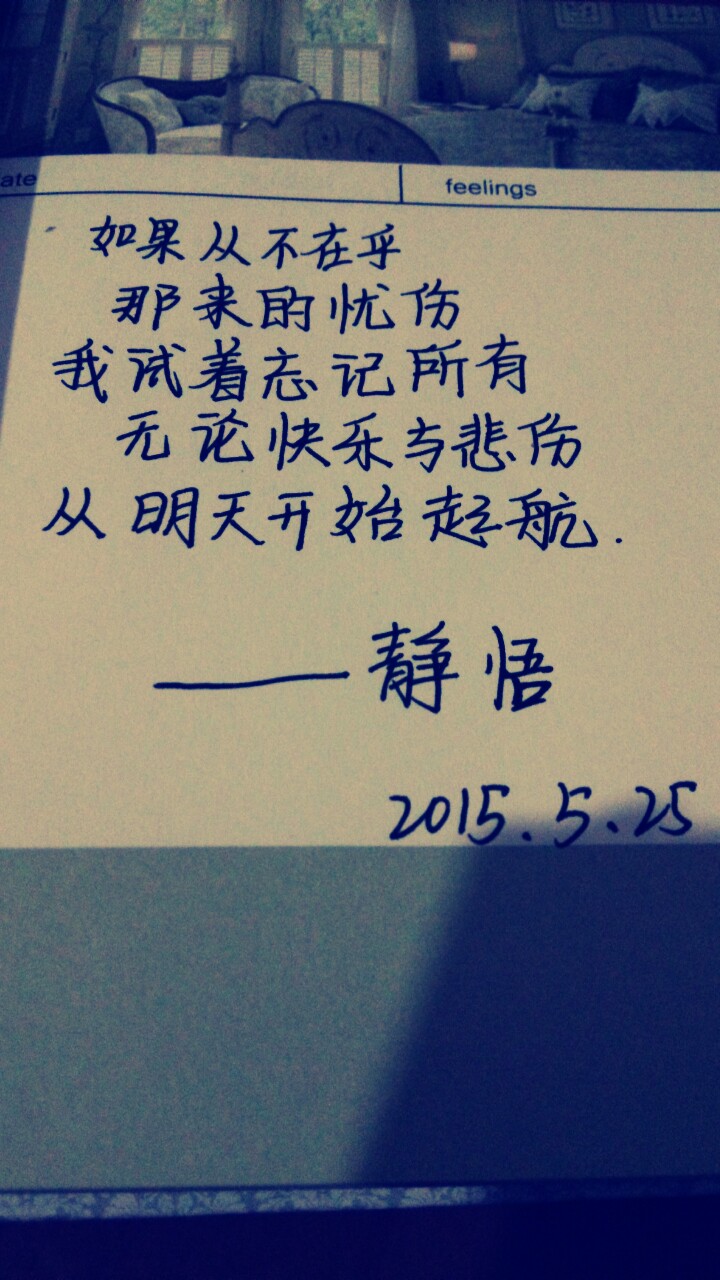 ate
feelings
如果从不在乎
那来的忧伤
我试着忘记所有
无论快乐与悲伤
从明天开始起航.
——静悟
2015.5.25